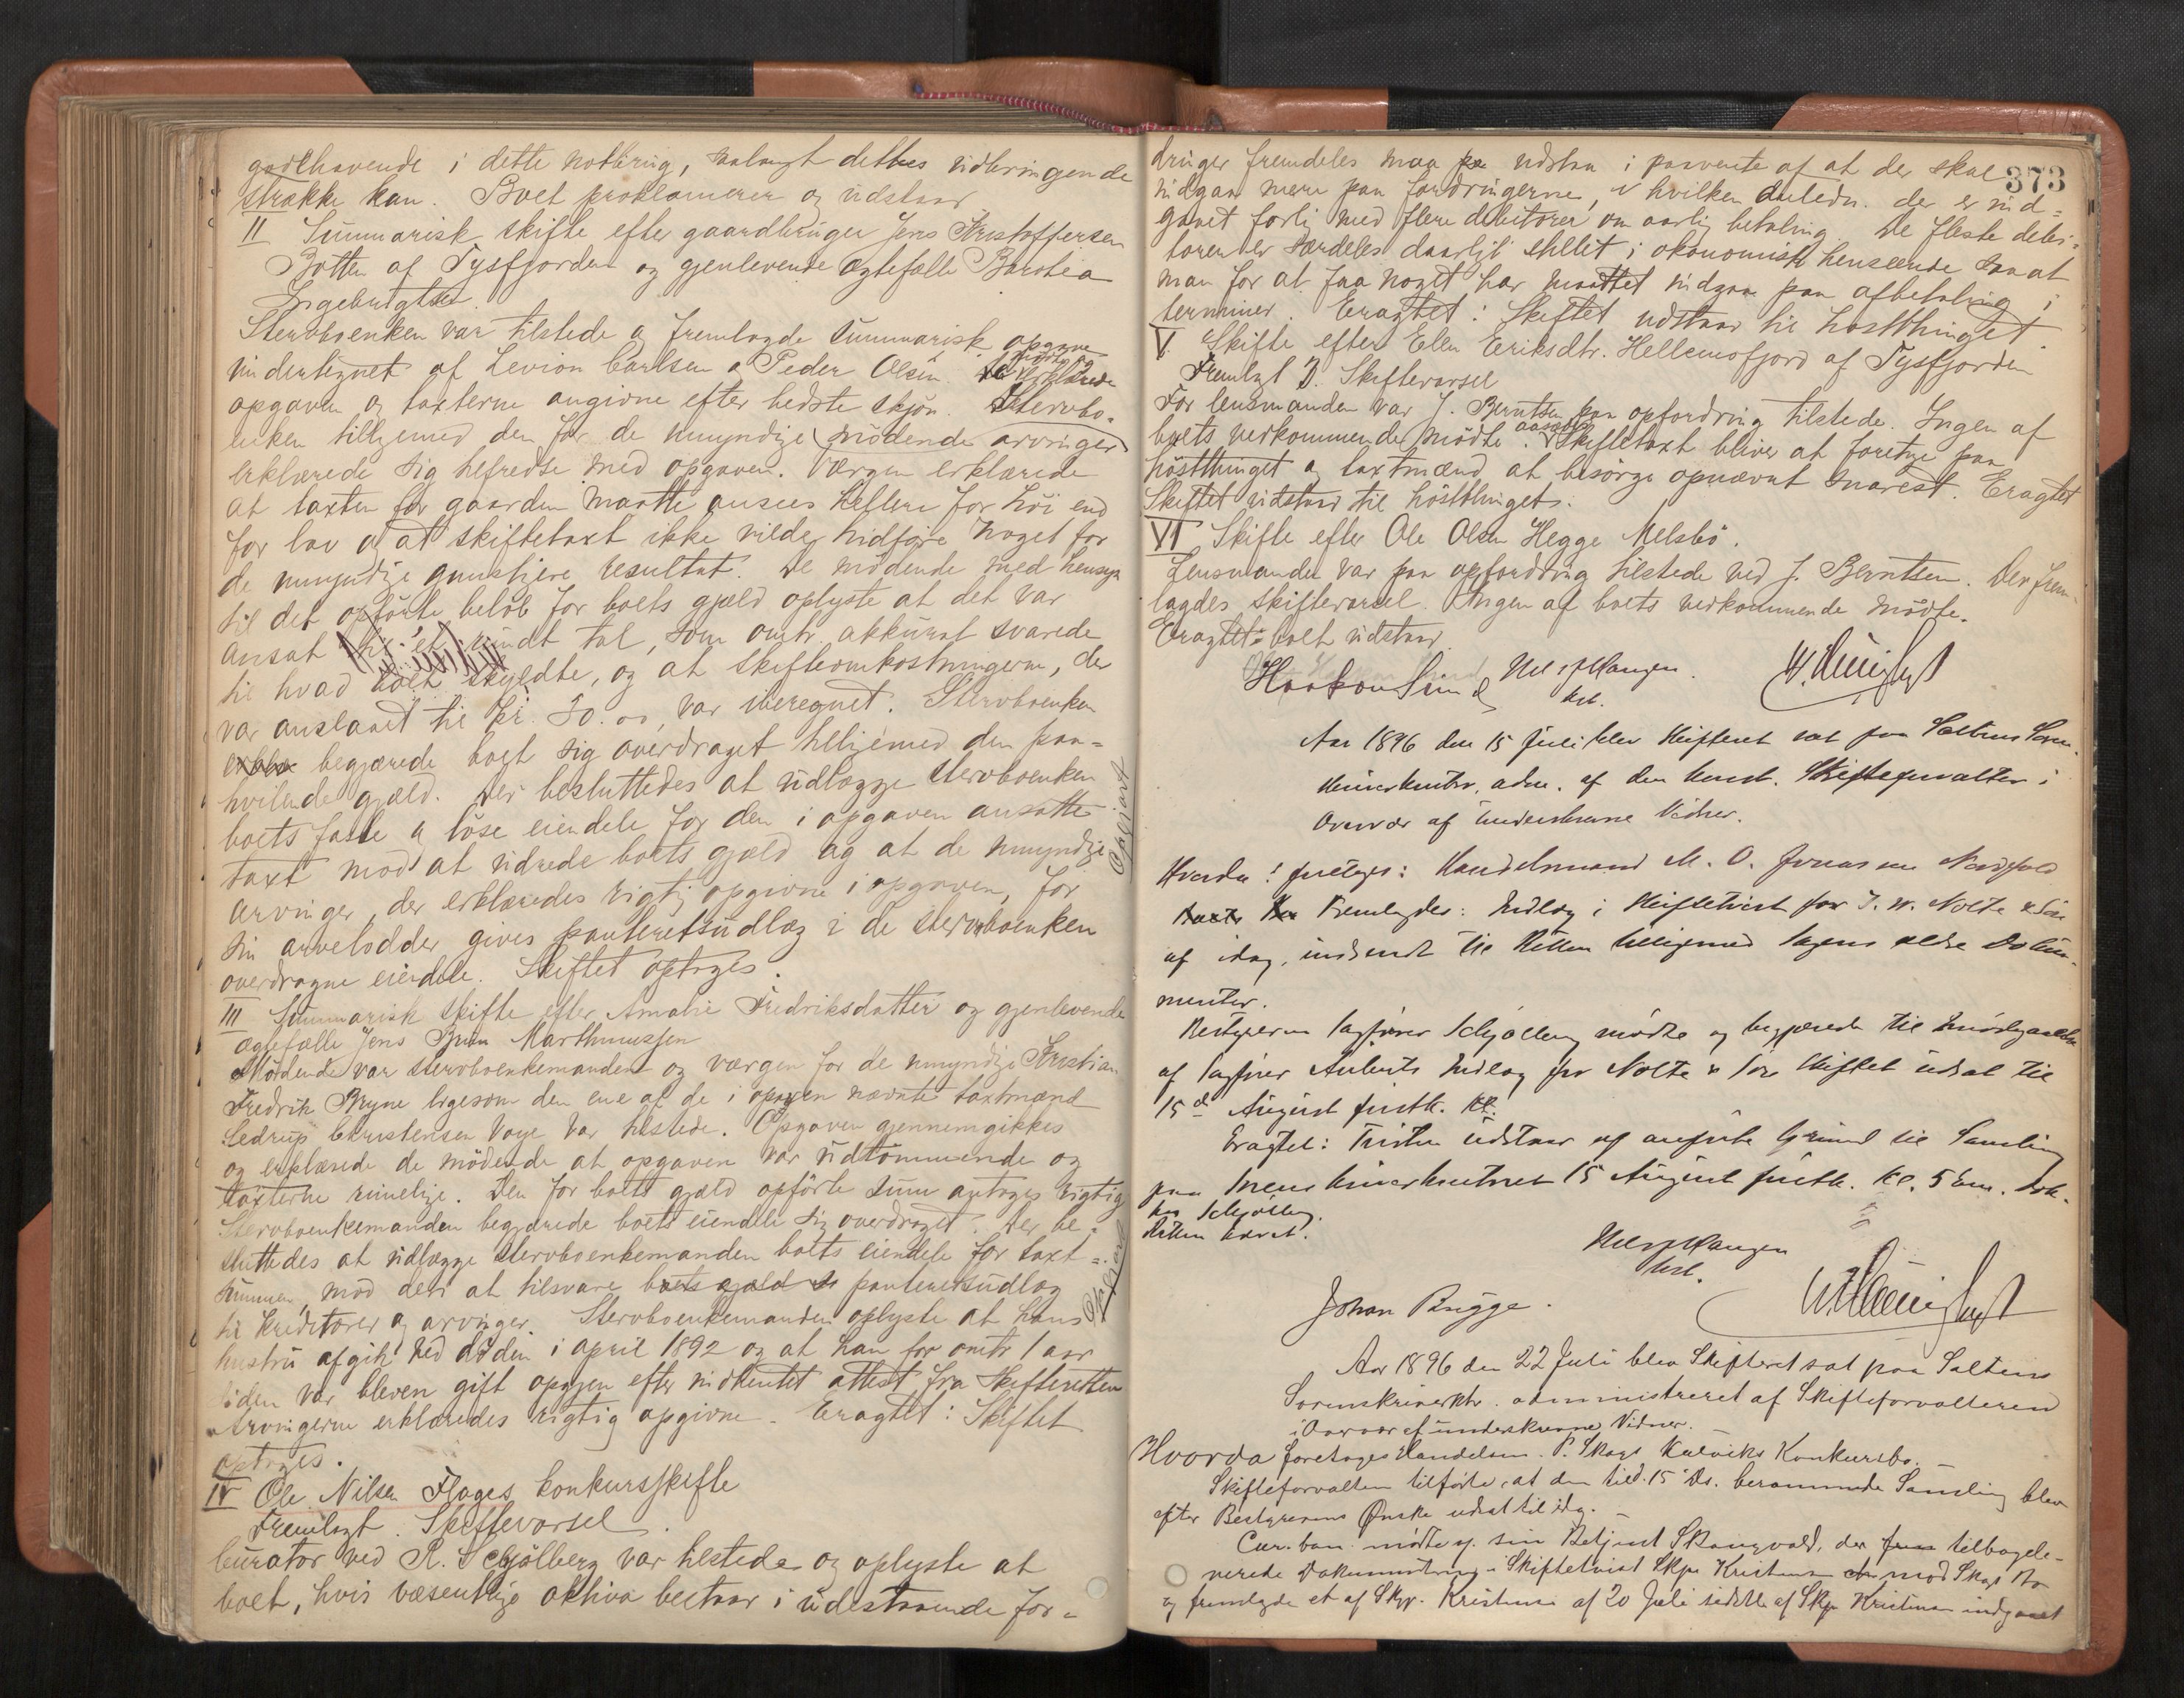 godthavende i dette nothring, saalangt dettes indbringende
strække kan. Boet proklameres og udstaar.
II Summarisk skifte efter gaardbruger Jens Kristoffersen
Botten af Tysfjorden og gjenlevende ægtefælle Barolia
Ingebrigtsd.
Stervboenken var tilstede og fremlagde summarisk opgave
undertegnet af Levion Carlsen og Peder Olsen. De mødte erklærede
opgaven og taxterne angivne efter bedste skjøn. Stervbo-
enken tilligemed den for de umyndige mødende arvinger
erklærede sig tilfredse med opgaven. Værgen erklærede
at taxten for gaarden maatte ansees hellere for høi end
for lav og at skiftetaxt ikke vilde hidføre noget for
de umyndige gunstigere resultat. De mødende med hensyn
til det opførte beløb for boets gjæld oplyste at det var
ansat til et rundt tal, som omtr. akkurat svarede
til hvad boet skyldte, og at skifteomkostningerne, der
var anslaaet til kr. 50.00, var iberegnet. Stervboenken
begjærede boet sig overdraget tilligemed den paa-
hvilende gjæld. Der besluttedes at udlægge stervboenken
boets faste og løse eiendele for den i opgaven ansatte
taxt mod at udrede boets gjæld og at de umyndige
arvinger, der erklæredes rigtig opgivne i opgaven, for
sin arvelodder gives panteretsudlæg i de stervboenken
overdragne eiendele. Skiftet optages.
Opgjort
III Summarisk skifte efter Amalie Fredriksdatter og gjenlevende
ægtefælle Jens Marthinussen
Mødende var stervboenkemanden og værgen for de umyndige Kristian
Fredrik Bryne ligesom den ene af de i opgaven nævnte taxtmænd
Sedrup Christensen Vaye var tilstede. Opgaven gjennemgikkes
og erklærede de mødende at opgaven var udtømmende og
taxterne rimelige. Den for boets gjæld opførte sum antages rigtig
Stervboenkemanden begjærede boets eiendele sig overdraget. Der be-
sluttedes at udlægge stervboenkemanden boets eiendele for taxt-
summen, mod deri at tilsvare boets gjæld og panteretsudlæg
til kreditorer og arvinger. Stervboenkemanden oplyste at hans
hustru afgik ved døden i april 1892 og at han for omtr. 1 aar
siden var bleven gift opigjen efter indhentet attest fra skifteretten
Arvingerne erklæredes rigtig opgivne. Eragtet: Skiftet
optages.
Opgjort
IV Ole Nilsen Flages konkursskifte
Fremlagt. Skiftevarsel.
Curator ved R. Schjølberg var tilstede og oplyste at
boet, hvis væsentlige aktiva bestaar i udestaaende for-
373
dringer fremdeles maa udstaa i paavente af at der skal
indgaa mere paa fordringerne, i hvilken anledn. der er ind-
gaaet forlig med flere debitorer om aarlig betaling. De fleste debi-
torer er særdeles daarligt stillet i økonomisk henseende saa at
man for at faa noget har maattet indgaa paa afbetaling i
terminer. Eragtet: Skiftet udstaar til høstthinget.
V. Skifte efter Elen Eriksdtr. Hellemofjord af Tysfjorden
Fremlagt D. Skiftevarsel
For lensmanden var J. Berntsen paa opfordring tilstede. Ingen af
boets vedkommende mødte. Skiftetaxt bliver at foretage paa
høstthinget og taxtmænd at besørge opnævnt snarest. Eragtet
Skiftet udstaar til høstthinget.
VI Skifte efter Ole Olsen Hegge Melsbø.
Lensmanden var paa opfordring tilstede ved J. Berntsen. Der frem-
lagdes skiftevarsel. Ingen af boets vedkommende mødte.
Eragtet: boet udstaar.
Haakon Nils Haugen
Kst.
Aar 1896 den 15 Juli blev Skifteret sat paa Saltens Soren-
skriverkontor, adm. af den konst. Skifteforvalter i
Overvær af underskrevne Vidner.
Hvorda! foretoges: Handelsmand M. O. Jonassen Nordfold
Fremlagdes: Indlæg i Skiftetvist for I. W. Nolte & Søn
af idag, indsendt til Retten tilligemed Sagens ældre Doku-
menter.
Bestyreren Sagfører Schjølberg mødte og begjærede til Imødegaaelse
af Sagfører Auberts Indlæg for Nolte & Søn Skiftet udsat til
15de August førstk. Kl.
Eragtet: Tvisten udstaar af anførte Grund til Samling
paa Sorenskriverkontoret 15 August førstk. Kl. 5 Em.
Schjølberg.
Retten hævet.
Nils Haugen
kst.
Johan Brygge.
Aar 1896 den 22 Juli blev Skifteret sat paa Saltens
Sorenskriverktr. administreret af Skifteforvalteren
i Overvær af underskrevne Vidner.
Hvorda foretoges Handelsm. P. Skags Kalviks Konkursbo.
Skifteforvalteren tilførte, at den til 15 ds. berammede Samling blev
efter Bestyrerens Ønske udsat til idag.
Cur. bon. mødte v. sin Betjent Skaugvold, der tilbagele-
verede Dokumenterne i Skiftetvist Skpr. Kristensen mod Skags Bo
og fremlagde et af Skpr. Kristensen af 20 Juli sidstl. af Skpr. Kristensen indgaaet